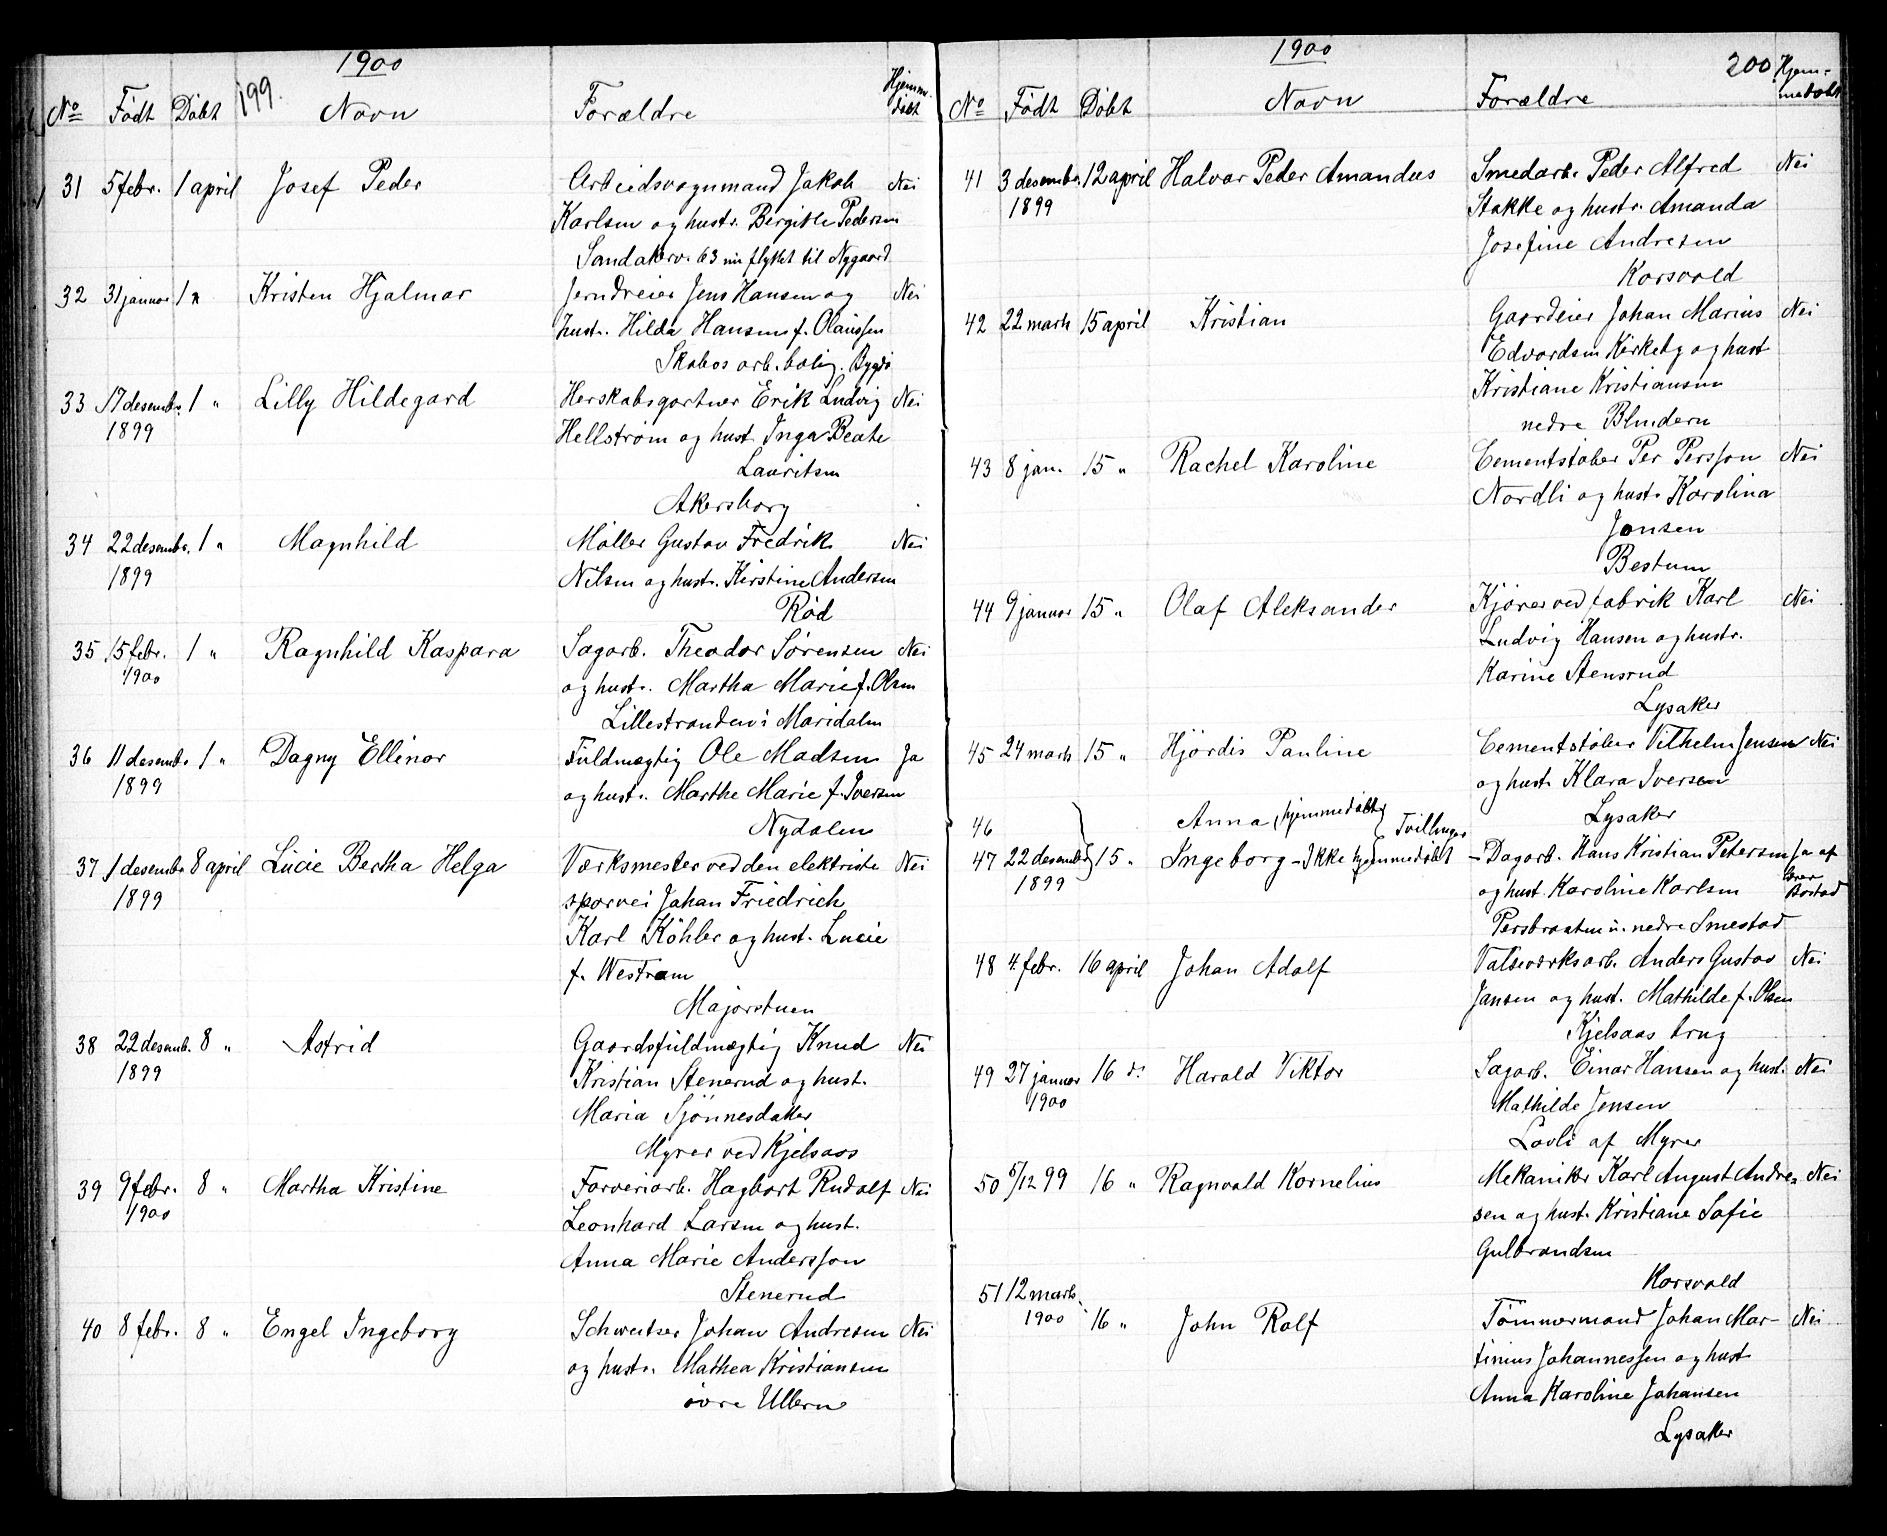 1900
199.
No Født Døbt Navn Forældre Hjemmedøbt
31 5 febr. 1 april Josef Peder Arbeidsvognmand Jakob Nei
Karlsen og hustr. Birgitte Pedersen
Sandakerv. 63 nu flyttet til Nygaard
32 31 januar 1 " Kristen Hjalmar Jerndreier Jens Hansen og Nei
hust. Hilda Hansen f. Olaussen
Skabos arb.bolig. Bygdø
33 17 desembr. 1 " Lilly Hildegard Herskabsgartner Erik Ludvig Nei
1899 Hellstrøm og hust. Inga Beate
Lauritsen
Akersborg
34 22 desembr. 1 " Magnhild Møller Gustav Fredrik Nei
1899 Nilsen og hust. Kirstine Andersen
Rød
35 15 febr. 1 " Ragnhild Kaspara Sagarb. Theodor Sørensen Nei
1900 og hust. Martha Marie f. Olsen
Lillestranden i Maridalen
36 11 desembr. 1 " Dagny Ellinor Fuldmægtig Ole Madsen Ja
1899 og hust. Marthe Marie f. Iversen
Nydalen
37 1 desembr 8 april Lucie Bertha Helga Værksmester ved den elektriske Nei
1899 sporvei Johan Friedrich
Karl Köhler og hust. Lucie
f. Westram
Majorstuen
38 22 desemb. 8 " Astrid Gaardsfuldmægtig Knud Nei
1899 Kristian Stenerud og hust.
Maria Sjønnesdakker
Myrer ved Kjelsaas
39 9 febr. 8 " Martha Kristine Farveriarb. Hagbart Rudolf Nei
1900 Leonhard Larsen og hust.
Anna Marie Andersson
Stenerud
40 8 febr. 8 " Engel Ingeborg Schweitser Johan Andresen Nei
og hustr. Mathea Kristiansen
øvre Ullern
1900
200
No Født Døbt Navn Forældre Hjemmedøbt
41 3 desember 12 april Halvar Peder Amandus Smedarb. Peder Alfred Nei
1899 Stakke og hustr. Amanda
Josefine Andresen
Korsvold
42 22 marts 15 april Kristian Gaardeier Johan Marius Nei
Edvardsen Kirkeby og hust
Kristiane Kristiansen
nedre Blindern
43 8 jan. 15 " Rachel Karoline Cementstøber Per Persson Nei
Nordli og hust. Karolina
Jonsen
Bestum
44 9 januar 15 " Olaf Aleksander Kjører ved fabrik Karl Nei
Ludvig Hansen og hustr.
Karine Stensrud
Lysaker
45 24 marts 15 " Hjördis Pauline Cementstøber Vilhelm Jensen Nei
og hust. Klara Iversen
Lysaker
46 Anna, hjemmedøbt } Tvillinger
47 22 desemb. } 15 " Ingeborg - Ikke hjemmedøbt - Dagarb. Hans Kristian Petersen Ja af
1899 og hust. Karoline Karlsen Borstad
Persbraaten u. nedre Smestad
48 4. febr. 16 april Johan Adolf Valseværksarb. Anders Gustav Nei
Jansen og hust. Mathilde f. Olsen
Kjelsaas brug
49 27 januar 16 d. Harald Viktor Sagarb. Einar Hansen og hust. Nei
1900 Mathilde Jensen
Lovli af Myrer
50 5/12 99 16 " Ragnvald Kornelius Mekaniker Karl August Andre- Nei
sen og hust. Kristiane Sofie
Gulbrandsen
Korsvold
51 12 marts.
1900 16 " John Rolf Tømmermand Johan Mar- Nei
tinius Johannessen og hust
Anna Karoline Johansen
Lysaker